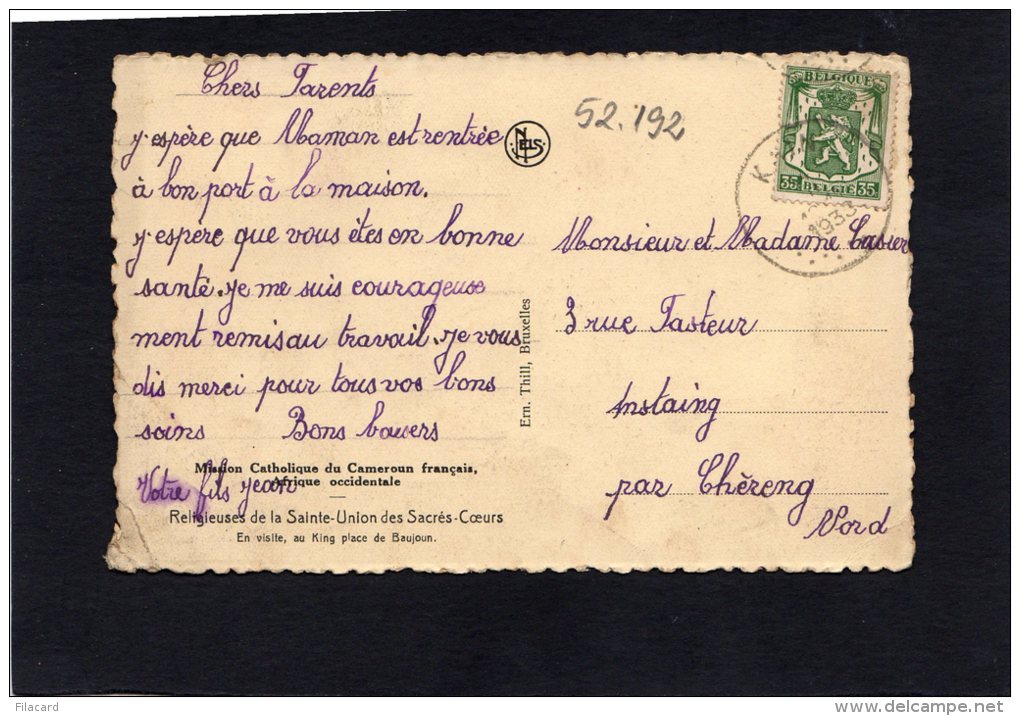 Chers Parents
j'espère que Maman est rentrée
à bon port à la maison.
j'espère que vous êtes en bonne
santé. je me suis courageuse
ment remis au travail. je vous
dis merci pour tous vos bons
soins Bons baisers
Votre fils jean
Mission Catholique du Cameroun français,
Afrique occidentale
Religieuses de la Sainte-Union des Sacrés-Cœurs
En visite, au King place de Baujoun.
NELS
Ern. Thill, Bruxelles
52.192
BELGIQUE
35 BELGIË 35
K
1933
Monsieur et Madame
3 rue Pasteur
Anstaing
par Chèreng
Nord
Filacard
delcampe.net